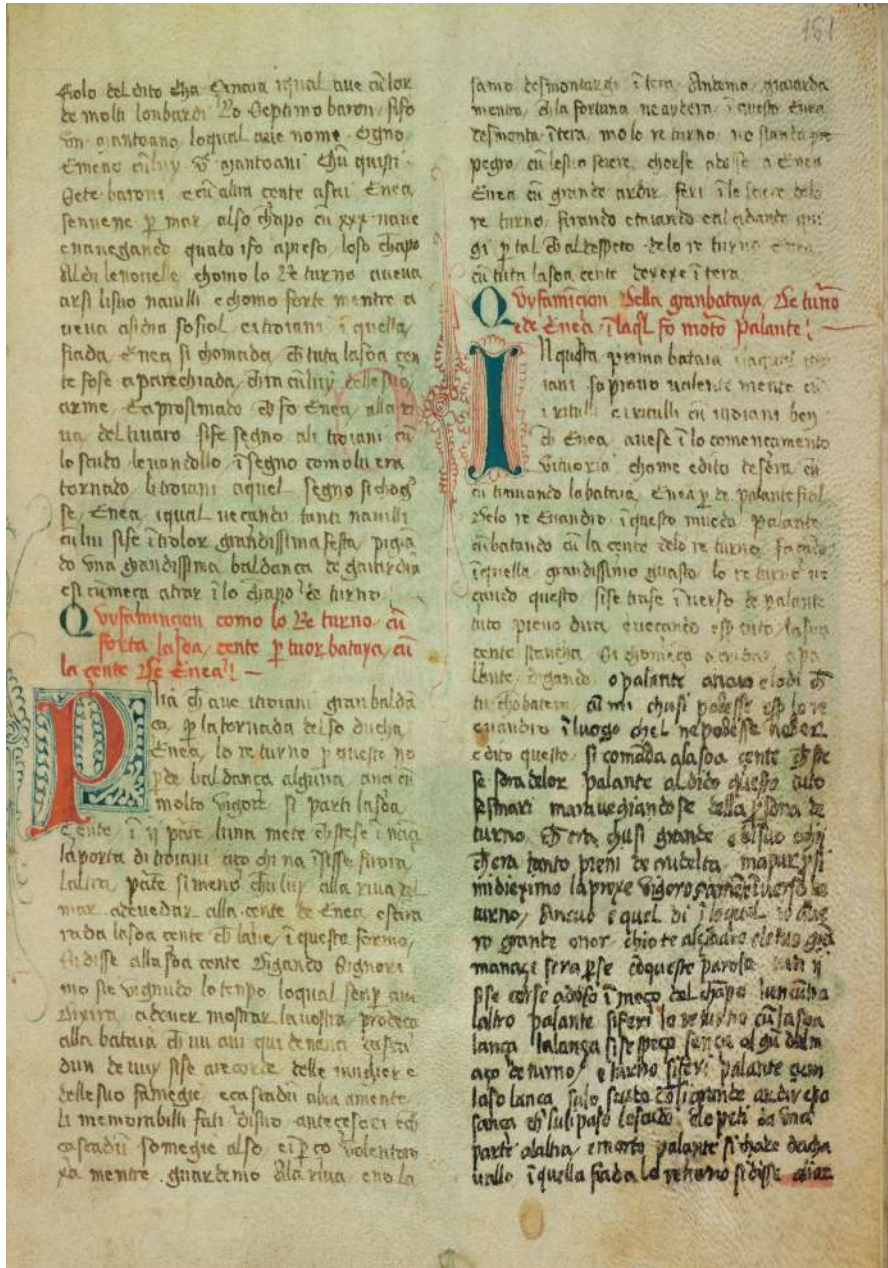 151
fiolo del dito cha Genoia igual aue cū lor
de molti lonbardi Lo Septimo baron sifo
vn mantoano loqual auie nome Ogno
Emeno cū luy vᶜ mantoani Chū quisti
Sete baroni e cū altra cente asai Enea
senuene p mar also chapo cū xxx naue
enauegando quato ifo apreso loso chapo
Aldi lenouele chomo lo Re turno aueua
arsi lisuo nauilli e chomo forte mentre a
ueua asidia sofiol eitroiani ī quella
fiada Enea si chomada ch tuta lasoa cen
te fose aparechiada chia cū luy delle suo
arme Eaprosimado ch fo Enea alla ri
ua del tiuaro sife segno ali troiani cū
lo scudo leuandollo ī segno como lu era
tornado li troiani aquel segno si chog
se Enea igual uecandu tanti nauilli
cū lui sife ī tolor grandissima festa pigia
do vna grandissima baldanca de gaiardia
esi cumeca atrar ī lo chapo de turno
Quyfamincion como lo Re turno cū
forta lasoa cente p tuor bataya cū
la cente De Enea
Poia ch aue itroiani gran balda
ca p la tornada delso ducha
Enea lo re turno p questo no
pde baldanca alguna anci cū
molto vigore si parti lasoa
cente ī ij parte luna mete chstese ī naci
laporta di troiani aco chi na īsisse fuora
Laltra parte si meno chū luy alla riua del
mar adeuedar alla cente de Enea estara
rada lasoa cente ch laue ī questa formo
Si disse alla soa cente digando Signori
mo sie vegnudo lo tenpo loqual senp aui
dixira adeuer mostrar la uostra prodeca
alla bataia ch uu aui qui denanci cascū
dun de uuy sise arecorde delle mugier e
delle suo famegie ecascadū altra mente
li memorabilli fati disuo antecesori ech
cascadū somegie also eip co volentaro
xa mente guardemo ala riua eno la
samo desmontar qi ī tera Andemo gaiarda
mentre ch la fortuna ne aydera ī questo Enea
desmonta ī tera mo lo re turno no stanta pre
pegro cū lesua sciere chorse adosse a Enea
Enea cū grande ardir feri ī le sciere delo
re turno firando etaiando ealcidando qui
gi p tal ch al despeto delo re turno enea
cū tuta lasoa cente desexe ī tera
Quyfamincion Della granbataya De turno
ede Enea ī laql fo morto palante
In questa prima bataia ī laqual itro
iani sa prouo ualente mente cū
i ritulli eirutulli cū itroiani ben
ch Enea auese ī lo comencamento
vituoria chome edito desoura cū
cū tinuando la bataia Enea p de palante fiol
Delo re Euandro ī questo muodo palante
cūbatando cū la cente delo re turno facado
ī quella grandissimo guasto lo re turno ue
cando questo sise trase ī uerso de palante
tuto pieno dira euecando esp tuto lasoa
cente stancha Si chomeco a cridar a pa
llante digando o palante anaro elodi ch
tu chobatem cū mi chusi podesse esp lo re
euandro ī luogo chel ne podesse ueder
e dito questo si comada alasoa cente ch ste
se fora delor palante aldido questo tuto
sesmari marauegiandose della psona de
turno ch era chusi grande edisuo ochi
ch era tanto pieni de crudelta ma pur psi
midieximo la proxe vigorosamēte ī uerso de
turno Ancuo e quel di ī loqual
ro grande onor chiote alcidaro eletuo gra
manaci sera pse coqueste parole tuti ij
sise corse adoso ī meco del chāpo lun cūtra
laltro palante siferi lo re turno cū lasoa
lanca lalanca sise speco senca algū dalm
aco de turno eturno siferi palante cum
laso lanca sulo scuto cō si grande ardir epo
sanca ch sulipaso loscudo elo peti da vna
parte alaltra emorto palante si chaxe dacha
uallo ī quella fiada lo re turno si disse alior